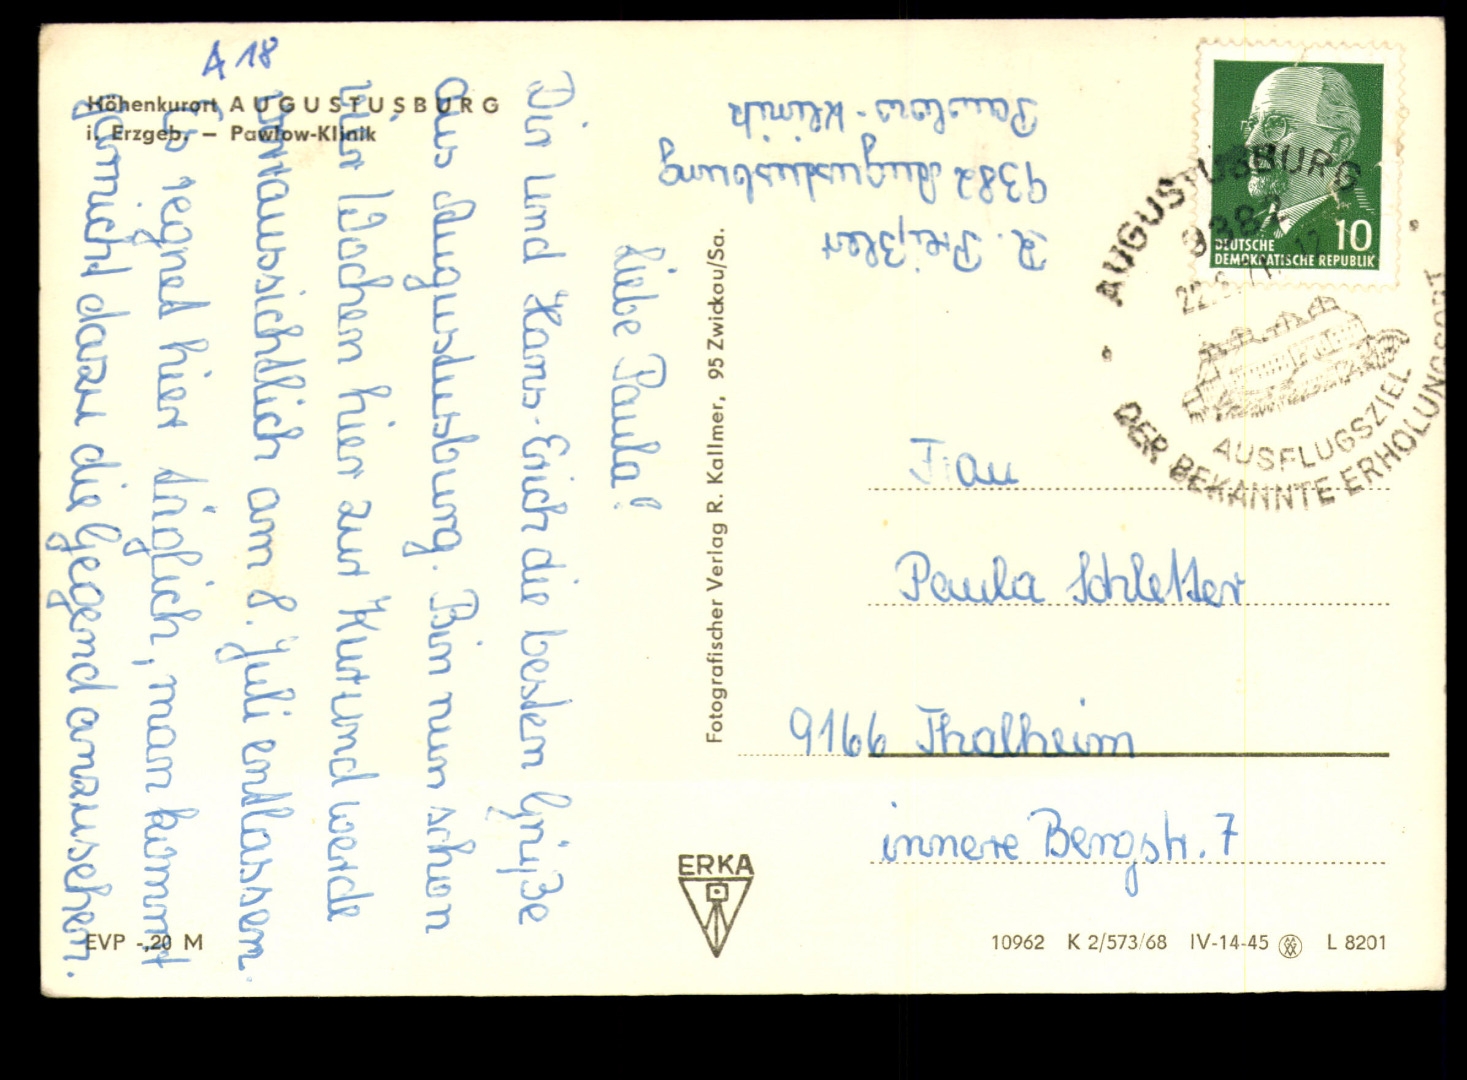 A 18
Höhenkurort AUGUSTUSBURG
i. Erzgeb. – Pawlow-Klinik
Liebe Paula!
Dir und Hans-Erich die besten Grüße
aus Augustusburg. Bin nun schon
vier Wochen hier zur Kur und werde
voraussichtlich am 8. Juli entlassen.
Es regnet hier täglich, man kommt
garnicht dazu die Gegend anzusehen.
EVP -,20 M
Fotografischer Verlag R. Kallmer, 95 Zwickau/Sa.
ERKA
R. Preißler
9382 Augustusburg
Pawlow-Klinik
10
DEUTSCHE
DEMOKRATISCHE REPUBLIK
AUGUSTUSBURG
9382
AUSFLUGSZIEL
DER BEKANNTE ERHOLUNGSORT
Frau
Paula Schletter
9166 Thalheim
innere Bergstr. 7
10962 K 2/573/68 IV-14-45 L 8201